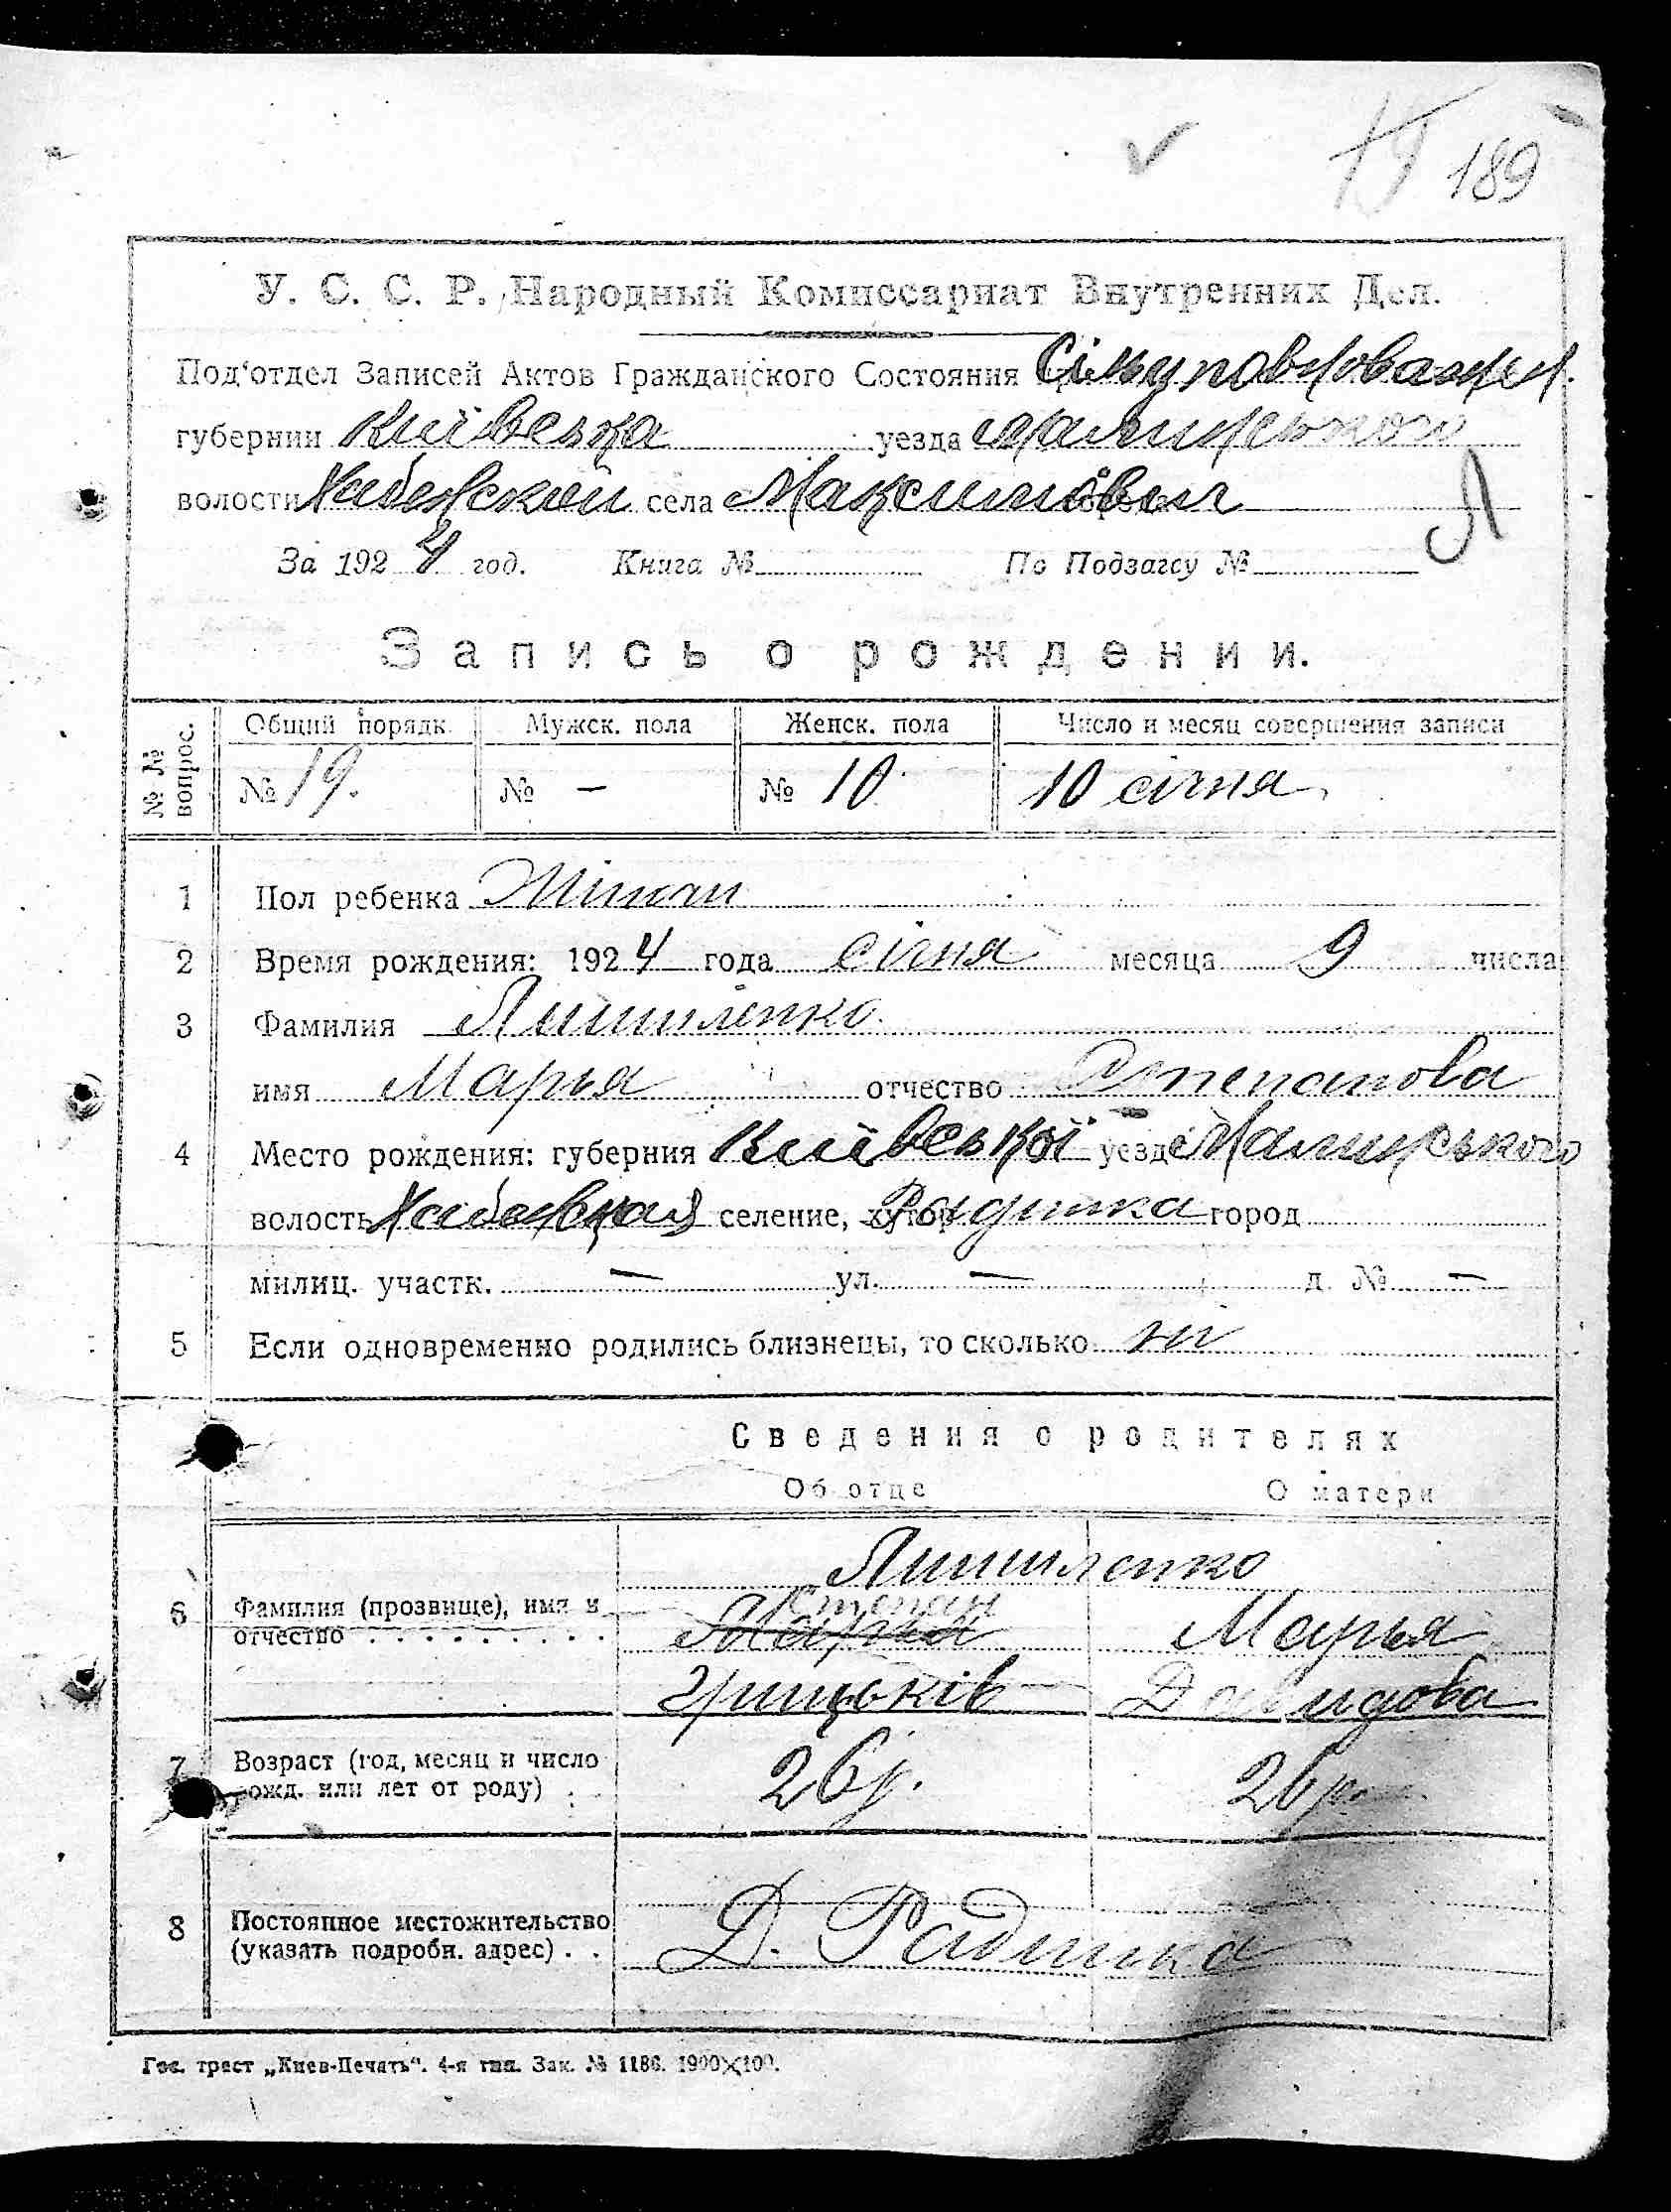 189
У. С. С. Р. Народный Комиссариат Внутренних Дел.
Под‘отдел Записей Актов Гражданского Состояния
губернии Київська уезда Малинського
волости села Максимович
За 1924 год. Книга № По Подзагсу №
Л
Запись о рождении.
№№ вопрос. Общий порядк. Мужск. пола Женск. пола Число и месяц совершения записи
№ 19. № – № 10 10 січня
1 Пол ребенка Жіночи
2 Время рождения: 1924 года січня месяца 9 числа
3 Фамилия
имя Марья отчество Степанова
4 Место рождения: губерния Київської уезд Малинського
волость селение, хутор Радинка город
милиц. участк. — ул. — д. № —
5 Если одновременно родились близнецы, то сколько ні
Сведения о родителях
Об отце О матери
6 Фамилия (прозвище), имя и отчество
Степан
Марья Марья
Грицьків Давидова
7 Возраст (год, месяц и число рожд. или лет от роду) 26 р. 26 р.
8 Постоянное местожительство (указать подробн. адрес) . . Д. Радинка
Гос. трест „Киев-Печать“. 4-я тип. Зак. № 1186. 1900×100.